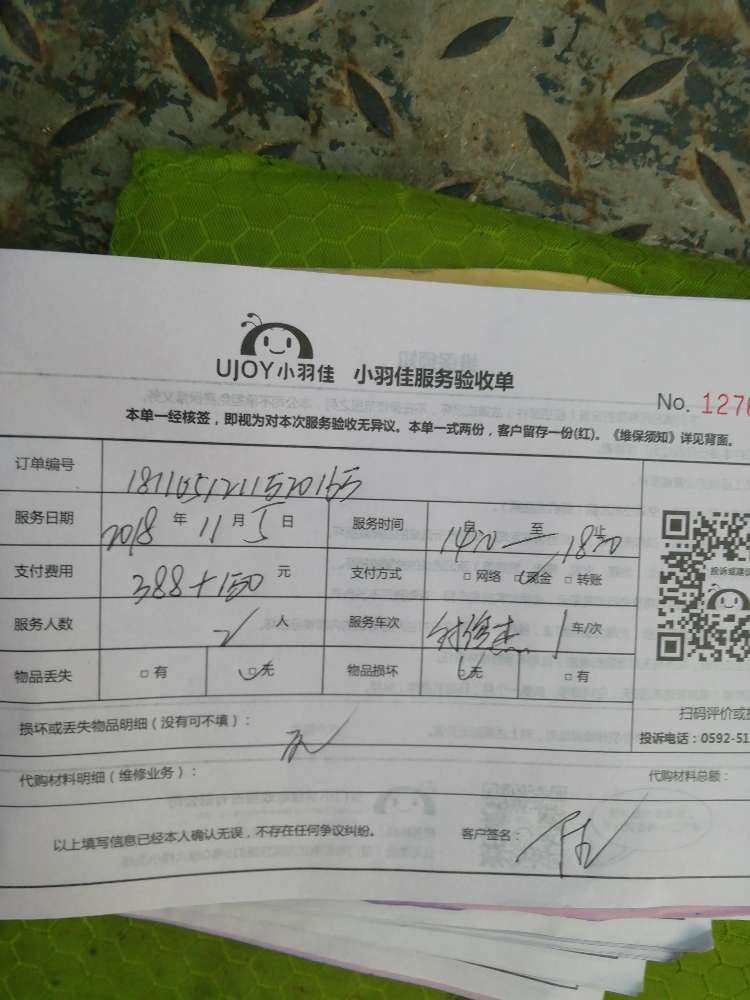 UJOY小羽佳 小羽佳服务验收单
No. 1276
本单一经核签，即视为对本次服务验收无异议。本单一式两份，客户留存一份(红)。《维保须知》详见背面。
订单编号
服务日期 2018 年 11 月 5 日 服务时间 自 1420 至 1820 止
支付费用 388+150 元 支付方式 □ 网络 ☑ 现金 □ 转账
服务人数 2 人 服务车次 1 车/次
物品丢失 □ 有 ☑ 无 物品损坏 ☑ 无 □ 有
投诉或建议
扫码评价或投
投诉电话：0592-51
损坏或丢失物品明细（没有可不填）： 无
代购材料明细（维修业务）： 代购材料总额：
以上填写信息已经本人确认无误，不存在任何争议纠纷。 客户签名：